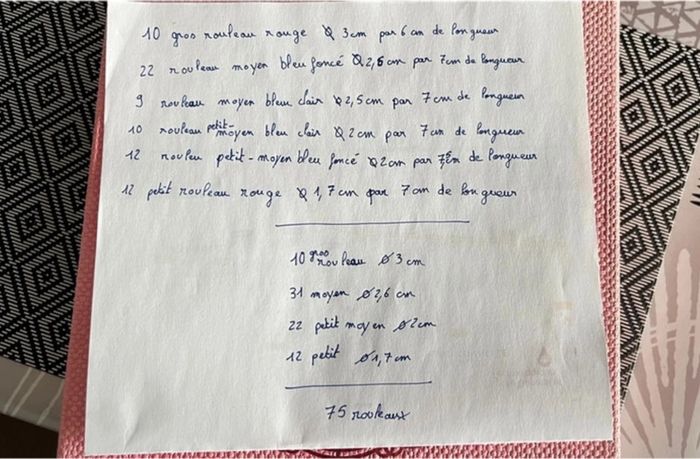 10 gros rouleau rouge Ø 3cm par 6 cm de longueur
22 rouleau moyen bleu foncé Ø 2,6 cm par 7cm de longueur
9 rouleau moyen bleu clair Ø 2,5 cm par 7 cm de longueur
10 rouleau petit-moyen bleu clair Ø 2 cm par 7 cm de longueur
12 rouleu petit-moyen bleu foncé Ø 2cm par 7cm de longueur
12 petit rouleau rouge Ø 1,7 cm par 7 cm de longueur
10 gros rouleau Ø 3 cm
31 moyen Ø 2,6 cm
22 petit moyen Ø 2cm
12 petit Ø 1,7 cm
75 rouleaux